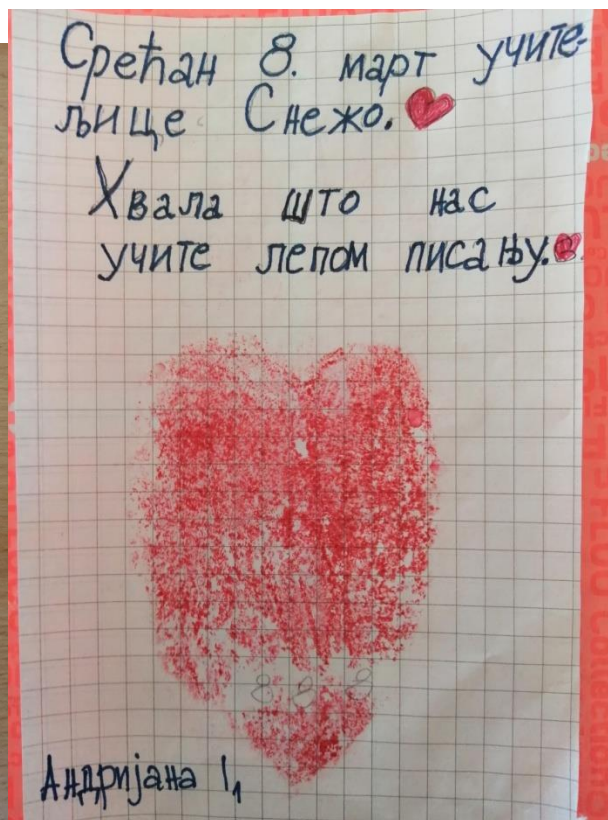 Срећан 8. март учите-
љице Снежо.
Хвала што нас
учите лепом писању.
8 8 8
Андријана I₁